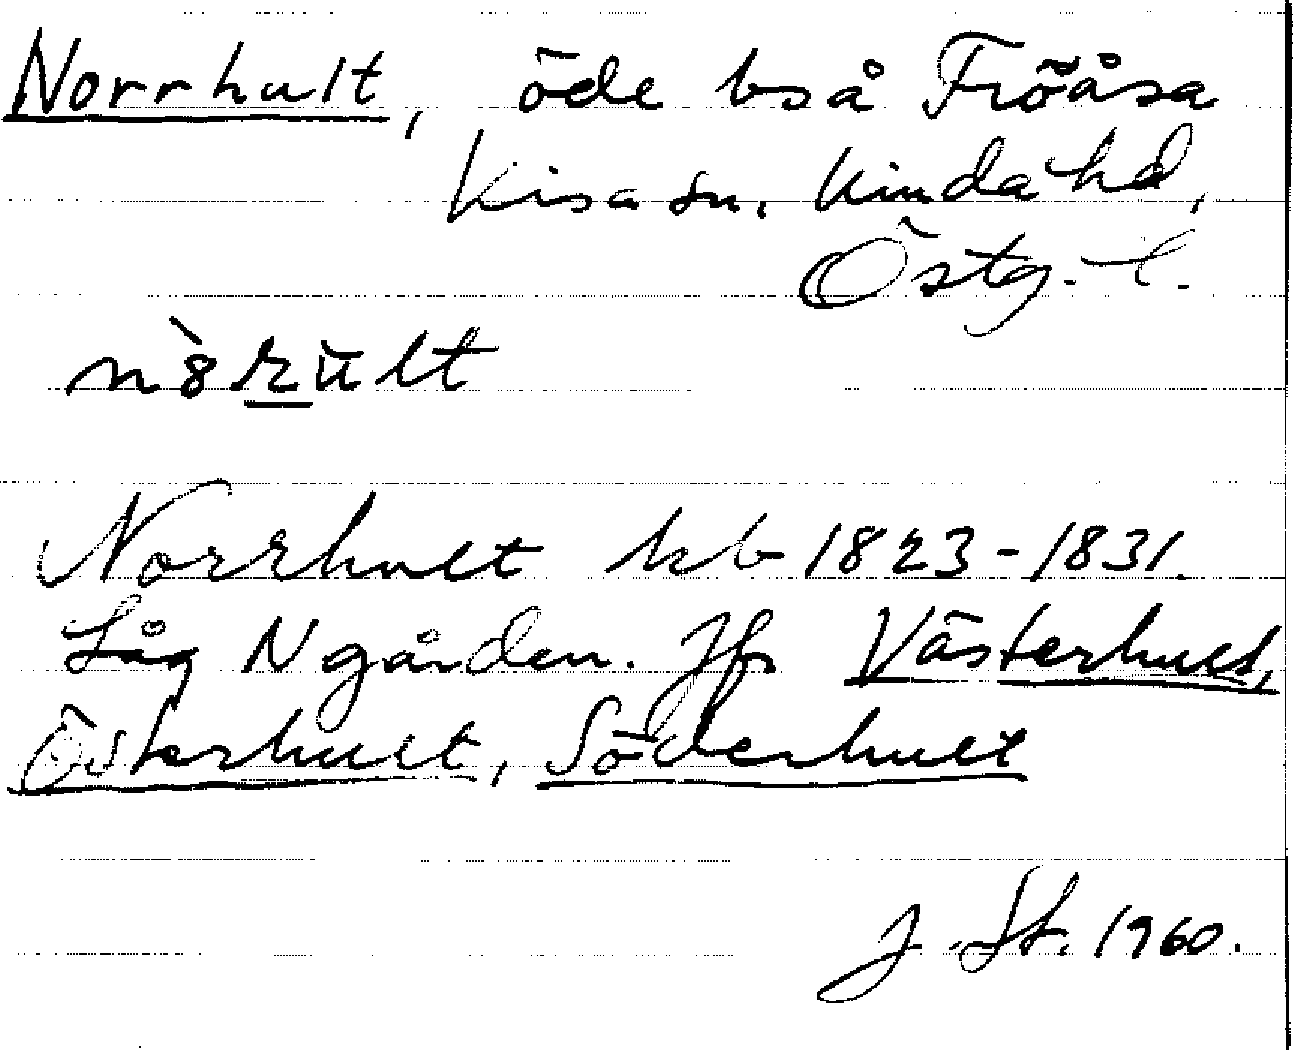 Norrhult, öde bså Fröåsa
Kisa sn. Kinda hd,
Östg. l.
n`8rŭlt
Norrhult kb 1823-1831.
Låg N gården. Jfr Västerhult,
Österhult, Söderhult
J. St. 1960.